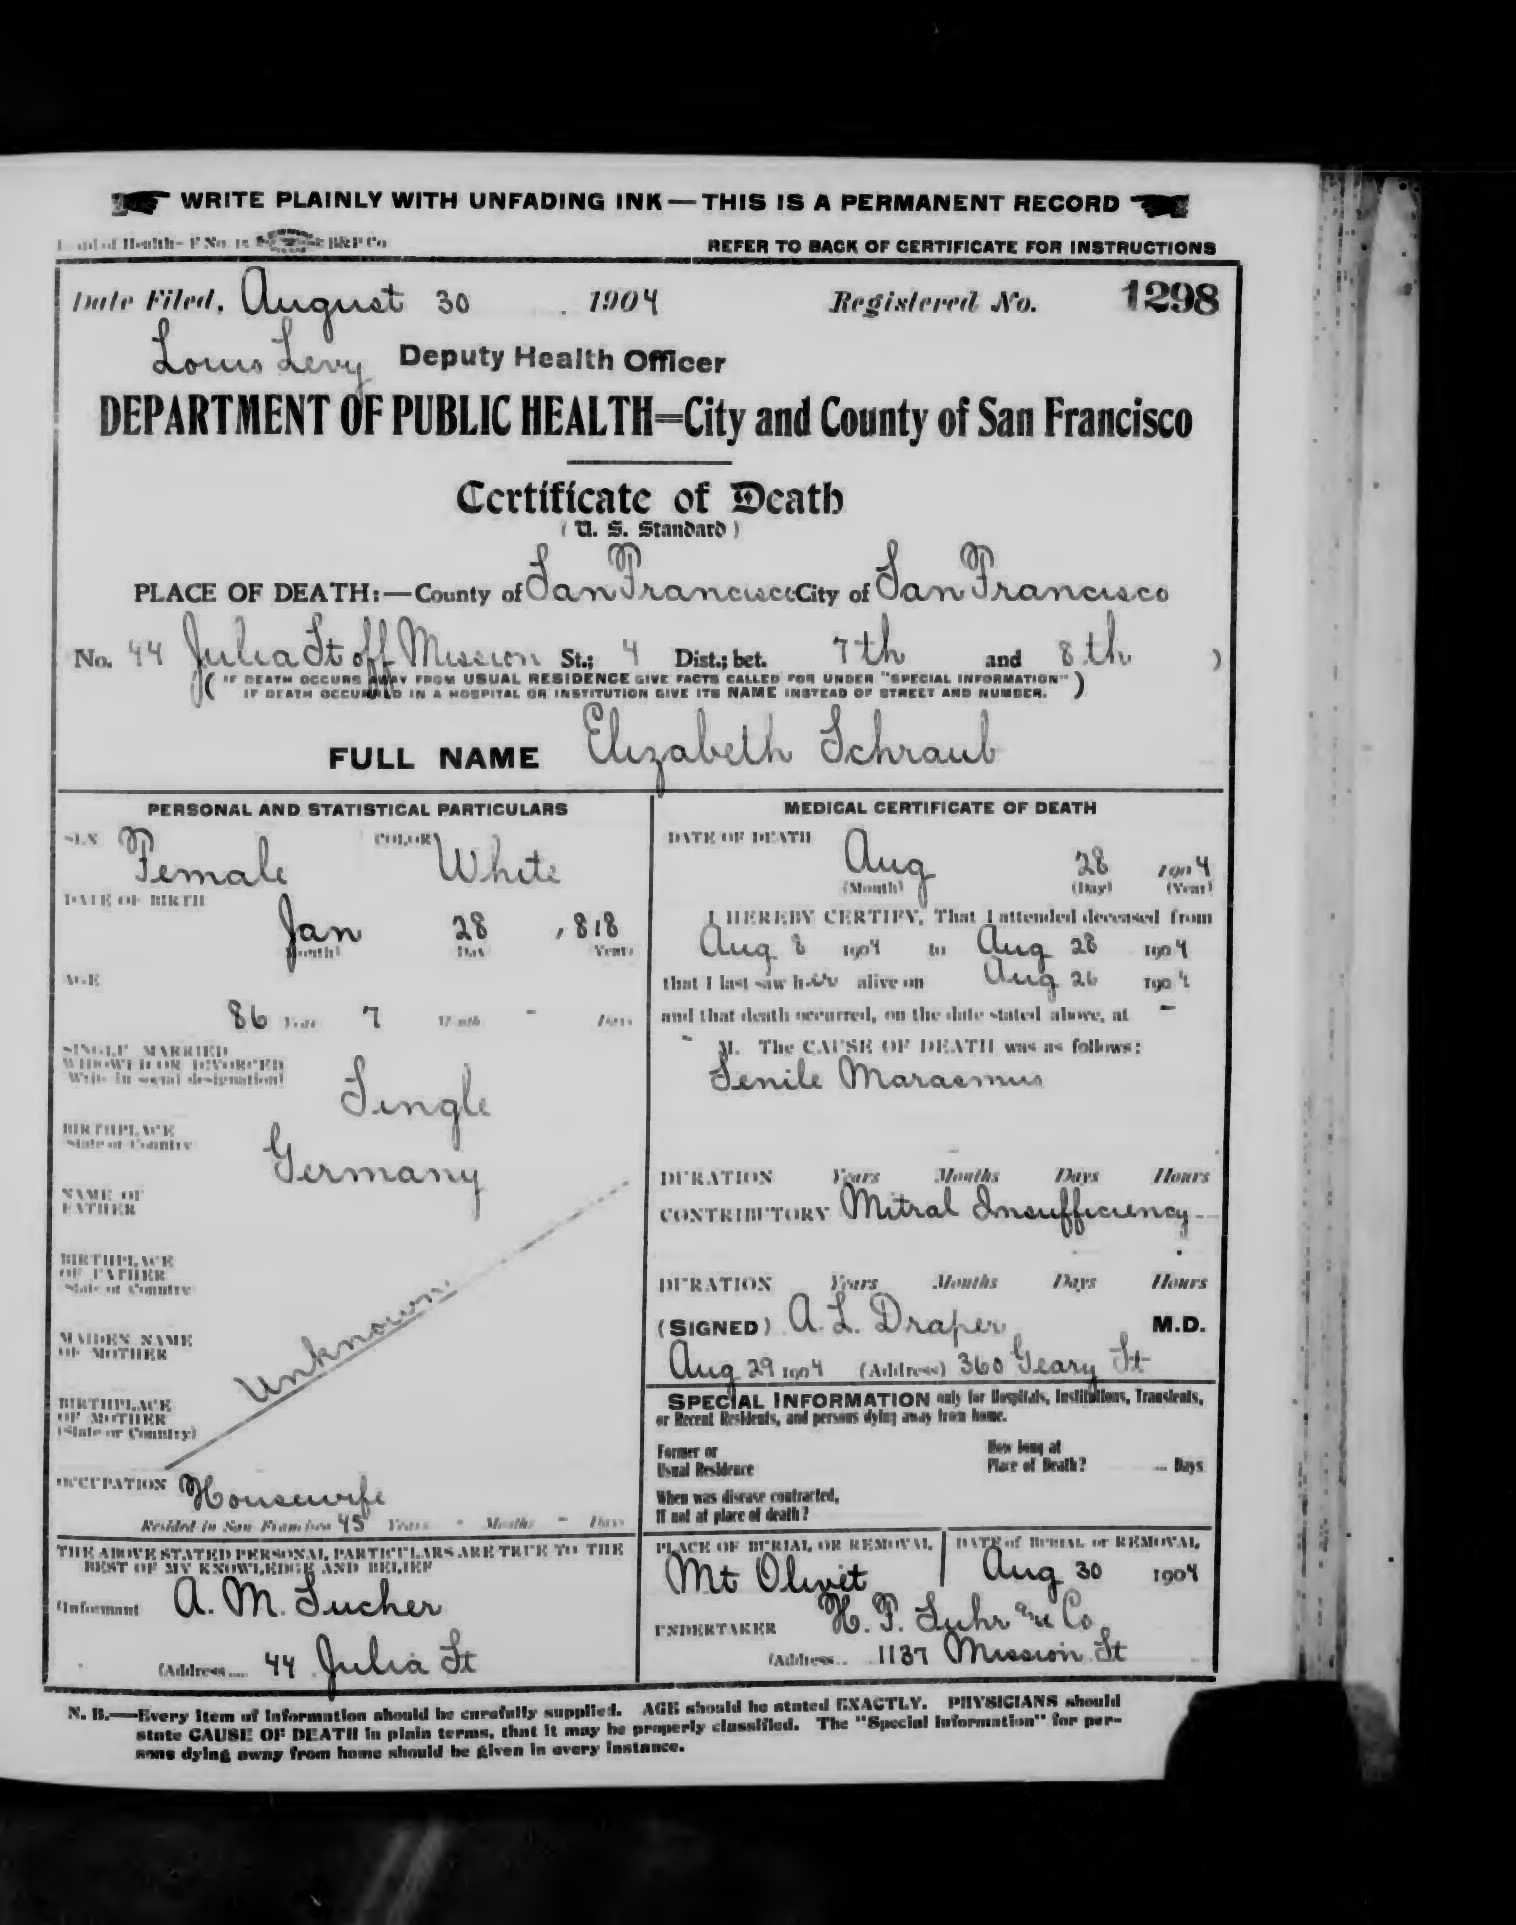 WRITE PLAINLY WITH UNFADING INK—THIS IS A PERMANENT RECORD
Board of Health—F No. 15 B&P Co REFER TO BACK OF CERTIFICATE FOR INSTRUCTIONS
Date Filed, August 30 1904 Registered No. 1298
Louis Levy Deputy Health Officer
DEPARTMENT OF PUBLIC HEALTH=City and County of San Francisco
Certificate of Death
( U. S. Standard )
PLACE OF DEATH:—County of San Francisco City of San Francisco
No. 44 Julia St off Mission St.; 4 Dist.; bet. 7th and 8th )
( IF DEATH OCCURS AWAY FROM USUAL RESIDENCE GIVE FACTS CALLED FOR UNDER "SPECIAL INFORMATION"
IF DEATH OCCURRED IN A HOSPITAL OR INSTITUTION GIVE ITS NAME INSTEAD OF STREET AND NUMBER. )
FULL NAME Elizabeth Schraub
PERSONAL AND STATISTICAL PARTICULARS
SEX Female COLOR White
DATE OF BIRTH
Jan 28 , 818
(Month) Day Year
AGE
86 Years 7 Months - Days
SINGLE MARRIED
WIDOWED OR DIVORCED
Write in social designation)
Single
BIRTHPLACE
State or Country
Germany
NAME OF
FATHER
BIRTHPLACE
OF FATHER
State or Country
MAIDEN NAME
OF MOTHER
Unknown
BIRTHPLACE
OF MOTHER
(State or Country)
OCCUPATION Housewife
Resided in San Francisco 45 Years - Months - Days
THE ABOVE STATED PERSONAL PARTICULARS ARE TRUE TO THE
BEST OF MY KNOWLEDGE AND BELIEF
(Informant A. M. Sucher
(Address.... 44 Julia St
MEDICAL CERTIFICATE OF DEATH
DATE OF DEATH
Aug 28 1904
(Month) (Day) (Year)
I HEREBY CERTIFY, That I attended deceased from
Aug 8 1904 to Aug 28 1904
that I last saw her alive on Aug 26 1904
and that death occurred, on the date stated above, at -
- M. The CAUSE OF DEATH was as follows:
Senile Marasmus
DURATION Years Months Days Hours
CONTRIBUTORY Mitral Insufficiency
DURATION Years Months Days Hours
(SIGNED) A. L. Draper M.D.
Aug 29 1904 (Address) 360 Geary St
SPECIAL INFORMATION only for Hospitals, Institutions, Transients,
or Recent Residents, and persons dying away from home.
Former or
Usual Residence
How long at
Place of Death? ... Days
When was disease contracted,
If not at place of death?
PLACE OF BURIAL OR REMOVAL
Mt Olivet
DATE of BURIAL or REMOVAL
Aug 30 1904
UNDERTAKER H. F. Suhr and Co
(Address.. 1137 Mission St
N. B.—Every item of information should be carefully supplied. AGE should be stated EXACTLY. PHYSICIANS should
state CAUSE OF DEATH in plain terms, that it may be properly classified. The "Special Information" for per-
sons dying away from home should be given in every instance.